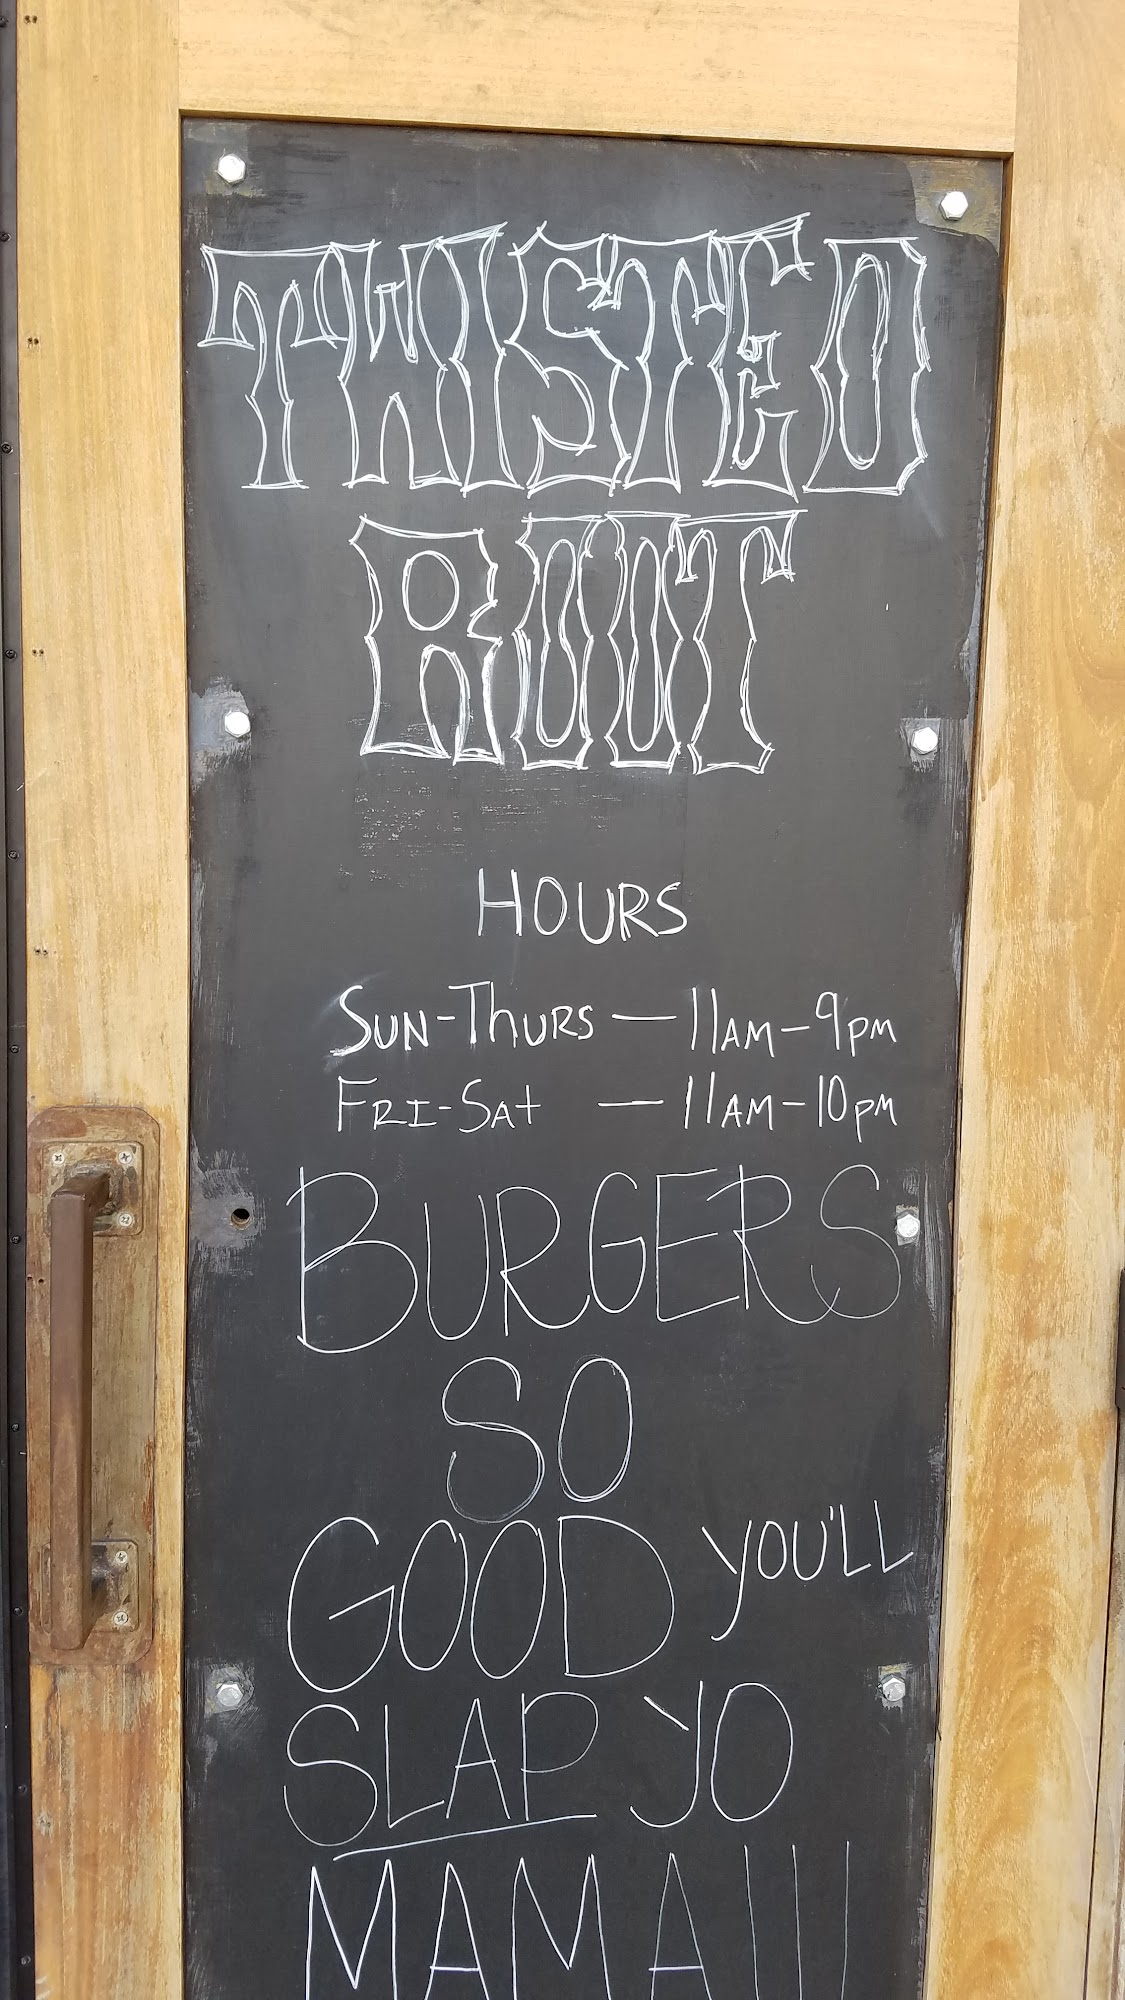 TWISTED
ROOT
HOURS
SUN-THURS — 11AM-9PM
FRI-SAT — 11AM-10PM
BURGERS
SO
GOOD YOU'LL
SLAP YO
MAMA!!!